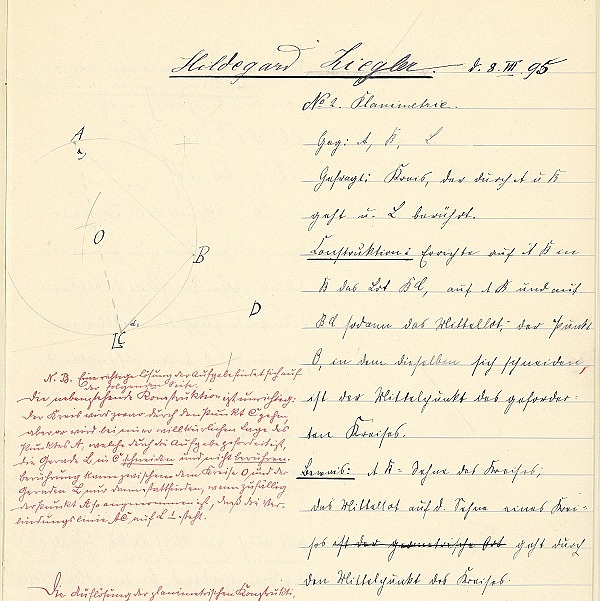 Hildegard Ziegler. d. 8. VII 95
No 2. Planimetrie.
Geg: A, B, L
Gefragt: Kreis, der durch A u B
geht u. L berührt.
Construktion: Errichte auf A B in
B das Lot BC, auf A B und auf
BC sodann das Mittellot, der Punkt
O, in dem dieselben sich schneiden,
ist der Mittelpunkt des geforder-
ten Kreises.
Beweis: A B = Sehne des Kreises;
das Mittellot auf d. Sehne eines Krei-
ses ist der geometrische Ort geht durch
den Mittelpunkt des Kreises.
A
O
B
D
L C
N. B. Eine richtige Lösung der Aufgabe findet sich auf
der folgenden Seite.
Die nebenstehende Konstruktion ist unrichtig:
der Kreis wird zwar durch den Punkt C gehen,
aber er wird bei einer willkürlichen Lage des
Punktes A, welche durch die Aufgabe gefordert ist,
die Gerade L in C schneiden und nicht berühren.
Berührung kann zwischen dem Kreise O und der
Geraden L nur dann stattfinden, wenn zufällig
der Punkt A so angenommen ist, dass die Ver-
bindungslinie AC auf L ⊥ steht.
Die Auflösung der planimetrischen Konstrukti,